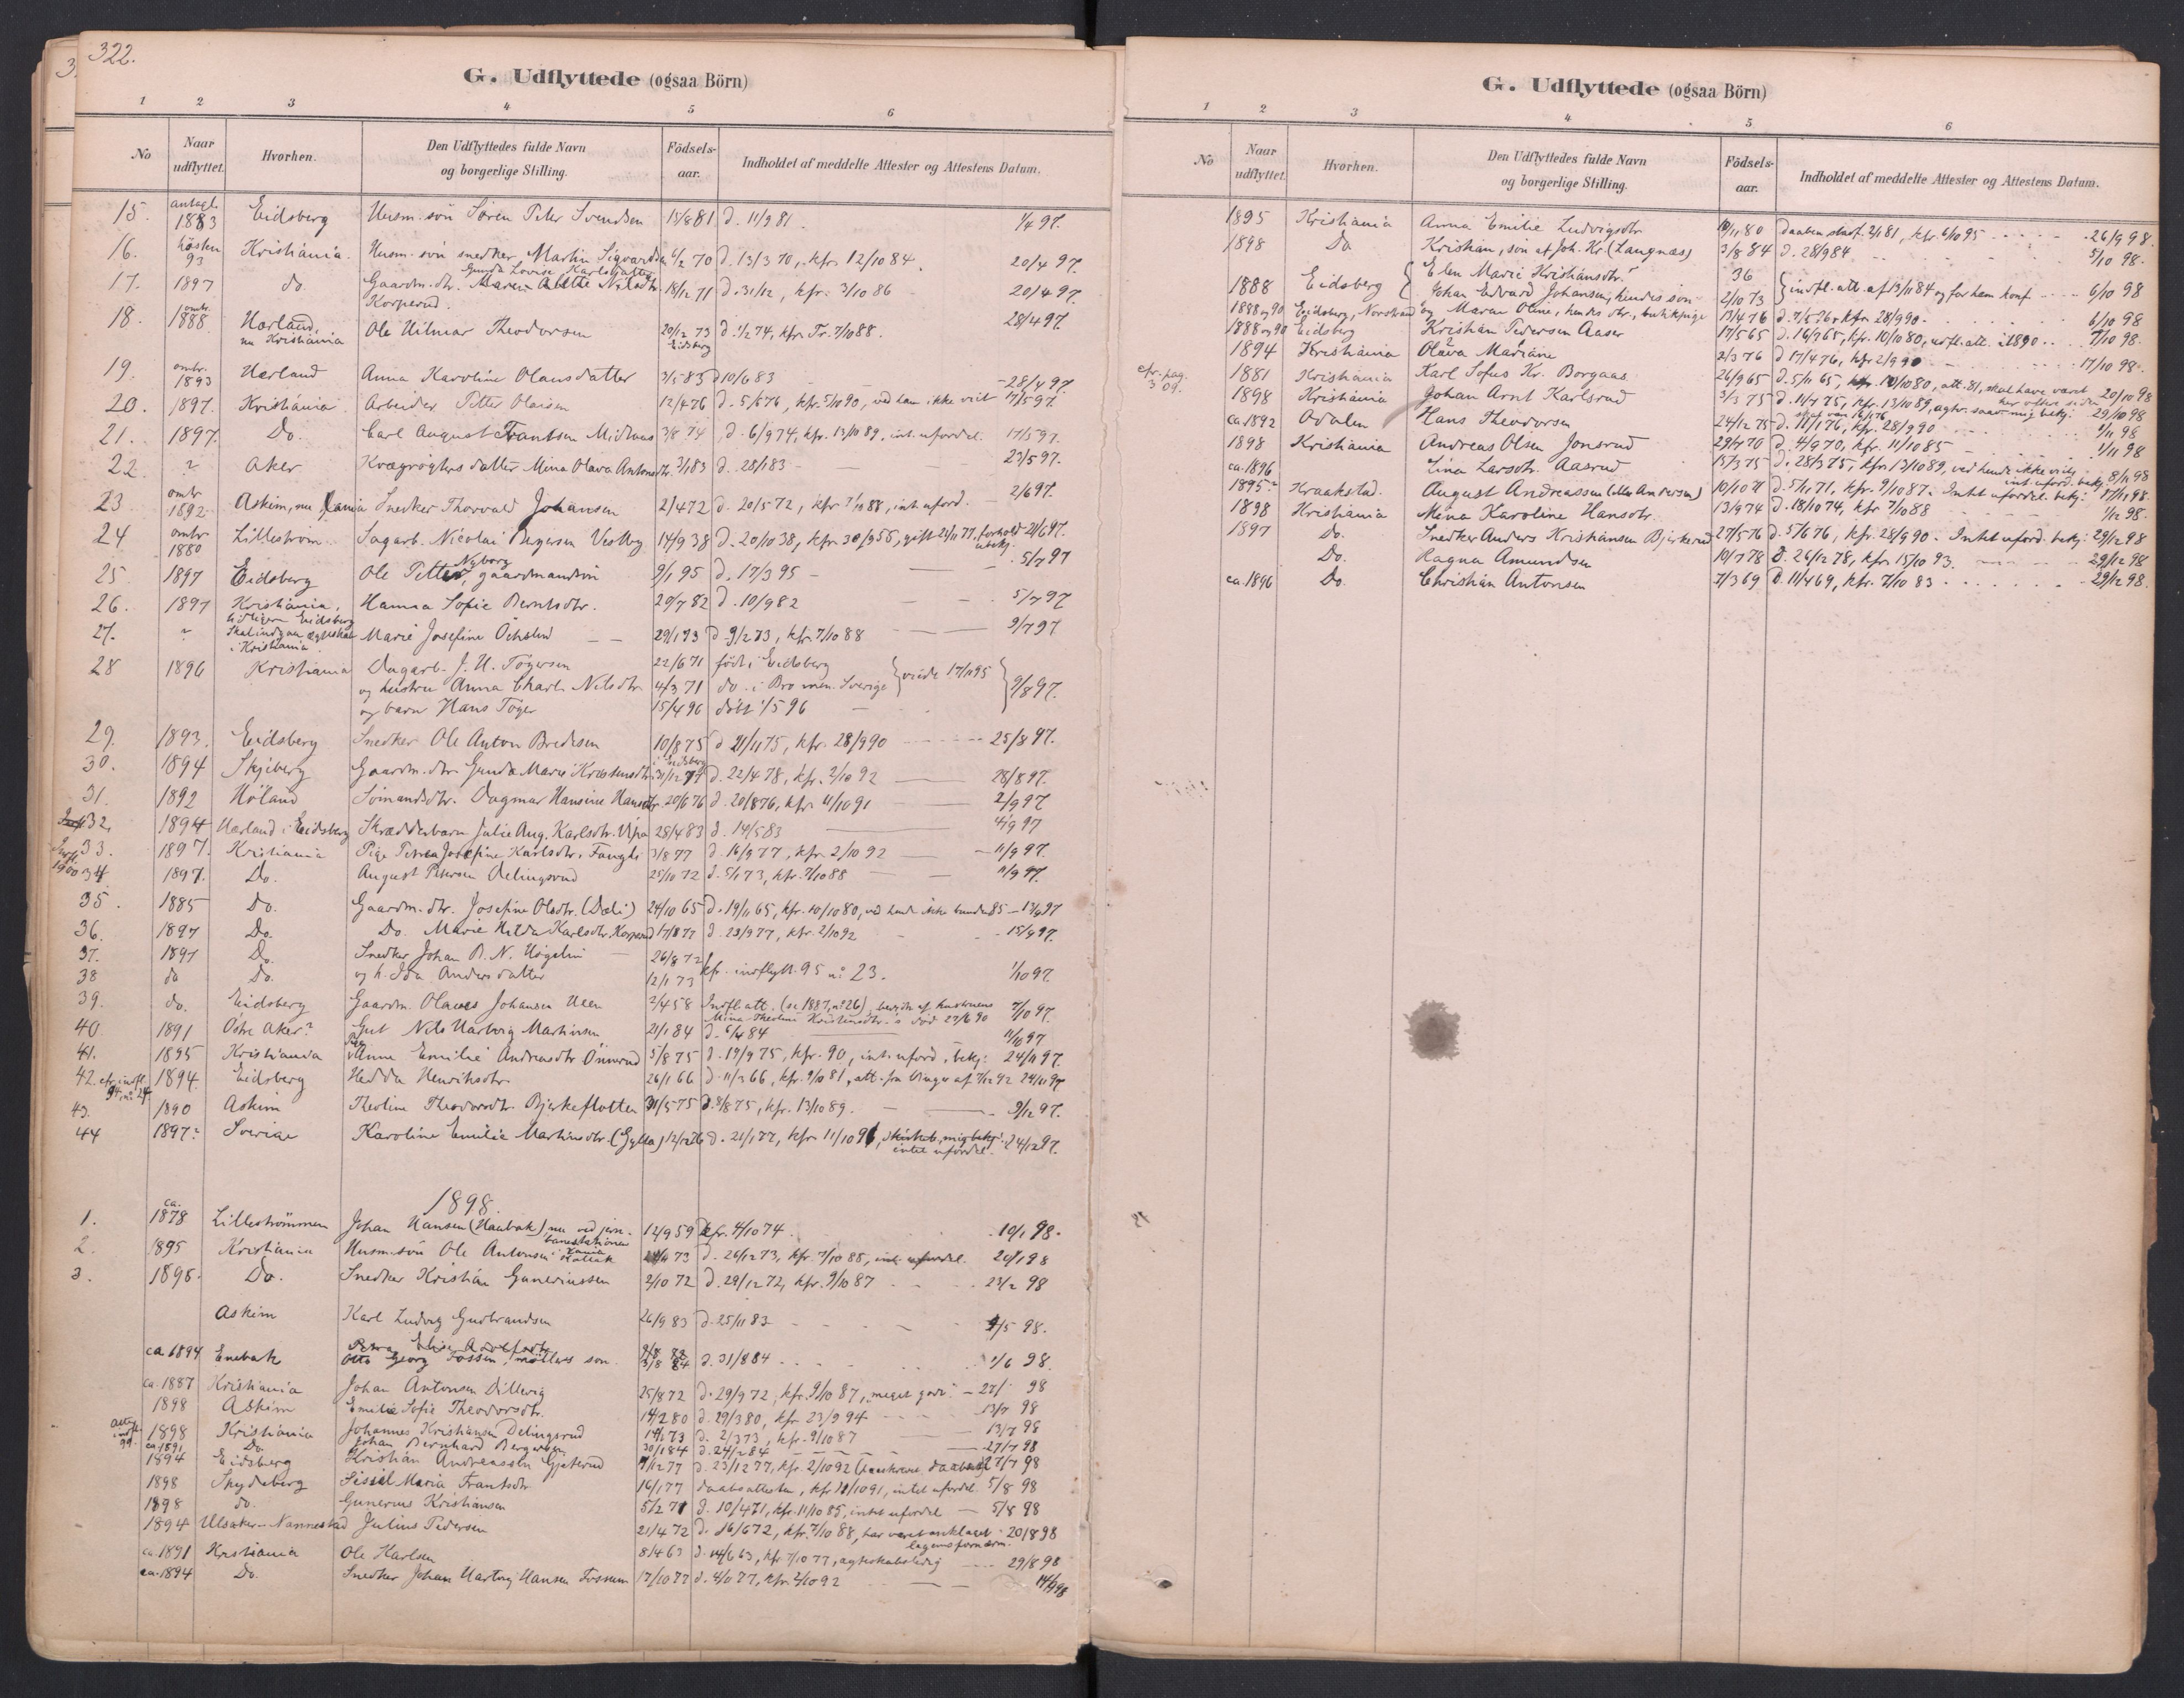 322.
G. Udflyttede (ogsaa Börn)
1 2 3 4 5 6
No Naar udflyttet. Hvorhen. Den Udflyttedes fulde Navn og borgerlige Stilling. Födsels-aar. Indholdet af meddelte Attester og Attestens Datum.
15. antagl. 1883 Eidsberg Husm. sön Sören Peter Svendsen 15/8 81 d. 11/9 81. 1/4 97.
16. hösten 93 Kristiania. Husm. sön snedker Martin Sigvardsen 6/2 70 d. 13/3 70, kfr. 12/10 84 20/4 97.
Gunda Lovise Karlsdatter
17. 1897 do. Gaardm. dtr. Maren Alette Nilsdtr. 18/12 71 d. 31/12, kfr. 3/10 86 20/4 97.
Korperud.
18. omtr. 1888. Hærland, nu Kristiania Ole Hilmar Theodorsen 20/12 73 Eidsberg d. 1/2 74, kfr. Tr. 7/10 88. 28/4 97.
19. omtr. 1893 Hærland Anna Karoline Olausdatter 3/5 83 d 10/6 83 28/4 97.
20. 1897. Kristiania. Arbeider Petter Olausen 12/4 76 d. 5/6 76, kfr. 5/10 90, ved ham ikke vist 17/5 97.
21. 1897. Do. Carl August Frantsen Midnas 3/8 74 d. 6/9 74, kfr. 13/10 89, int. ufordel. 17/5 97.
22. ? Aker Kvægrögters datter Mina Olava Antonsdtr. 3/1 83 d. 28/1 83 23/5 97.
23 omtr 1892. Askim, nu Kania Snedker Thorvald Johansen 2/4 72 d. 20/5 72, kfr 7/10 88, int. uford. 2/6 97.
24 omtr 1880 Lilleström Sagarb. Nicolai Bergersen Vestby 14/9 38 d. 20/10 38, kfr. 30/9 55, gift 21/11 77, forhold ubekj. 21/6 97.
25. 1897 Eidsberg Ole Petter Nyborg, gaardmandsön 9/1 95 d. 17/3 95 5/7 97
26. 1897 Kristiania, Hanna Sofie Berntsdtr. 20/7 82 d. 10/9 82 5/7 97
27. ? tidligere Eidsberg Skal indgaa ægteskab i Kristiania. Marie Josefine Ökslund 29/1 73 d 9/2 73, kfr. 7/10 88 9/7 97
28 1896 Kristiania Dagarb. J. H. Tögersen 22/6 71 födt i Eidsberg
og hustru Anna Charl. Nilsdtr. 4/3 71 do. i Bro men. Sverige viede 17/11 95 9/8 97.
og barn Hans Töger 15/4 96 döbt 1/5 96
29. 1893. Eidsberg Snedker Ole Anton Bredesen 10/8 75 d 21/11 75, kfr. 28/9 90 25/8 97.
30. 1894 Skjeberg Gaardm. dtr. Gunda Marie Kristensdtr. i Eidsberg 31/12 77 d. 22/4 78, kfr. 2/10 92 28/8 97.
31. 1892 Höland Sömandsdtr. Dagmar Hansine Hansdtr. 20/6 76 d. 20/8 76, kfr. 11/10 91 2/9 97
32. 1894 Hærland i Eidsberg Skrædderbarn Julie Aug. Karlsdtr. Vipa 28/4 83 d. 14/5 83 4/9 97
33. 1897. Kristiania Pige Petrea Josefine Karlsdtr. Fangli 3/8 77 d. 16/9 77, kfr. 2/10 92 11/9 97.
Indfl. 1900 34. 1897. Do. August Petersen Delingsrud 25/10 72 d. 5/1 73, kfr. 7/10 88 11/9 97.
35. 1885 Do. Gaardm. dtr. Josefine Olsdtr. (Dæli) 24/10 65 d. 19/11 65, kfr. 10/10 80, ved hende ikke bunden 85 13/9 97
36. 1897 Do. Do. Marie Hilda Karlsdtr. Korperud 17/8 77 d. 23/9 77, kfr. 2/10 92 15/9 97.
37. 1897 Do. Snedker Johan B. N. Högelin 26/8 72
38 do Do. og h. Ida Andersdatter 12/1 73 kfr. indflytt. 95 no. 23. 1/10 97.
39. do. Eidsberg Gaardm. Olaves Johansen Ueen 2/4 58 Indfl. att. (se 1887, no 26), bevidn. af hustruens Mina Theoline Kristiansdtr.'s död 23/6 90 7/10 97.
40. 1891 Östre Aker? Gut Nils Hartvig Martinsen 21/1 84 d. 6/4 84 11/10 97
41. 1895 Kristiania Pige Anne Emilie Andreasdtr Önnerud 5/8 75 d. 19/9 75, kfr. 90, int. uford. bekj. 24/11 97.
42. cfr. indfl. 94, no 24. 1894 Eidsberg Hedda Henriksdtr. 26/1 66 d. 11/3 66, kfr. 9/10 81, att. fra Vinger af 7/12 92 24/11 97
43. 1890 Askim Theoline Theodorsdtr. Bjerkeflotten 31/5 75 d. 8/8 75, kfr. 13/10 89. 9/12 97.
44 1897? Sverige Karoline Emilie Martinsdtr. (Gylta) 12/12 76 d. 21/1 77, kfr. 11/10 91, skudsb. mig bekj. intet ufordel. 24/12 97.
1898.
1. ca. 1878 Lilleströmmen Johan Hansen (Haabak), nu ved jern-banestationen i Kania 12/9 59 kfr. 4/10 74. 10/1 98.
2. 1895 Kristiania Husm. sön Ole Antonsen Kollak 73 d. 26/12 73, kfr. 7/10 88, int. ufordel. 20/1 98
3. 1898. Do. Snedker Kristian Gunerinssen 2/10 72 d. 29/12 72, kfr. 9/10 87 23/2 98
Askim Karl Ludvig Gudbrandsen 26/9 83 d. 25/11 83 9/5 98.
Petra Elise Adolfsdtr.
ca 1894 Enebak Otto Georg Fossen, möllers sön. 3/8 84 d. 31/8 84 1/6 98.
ca. 1887 Kristiania Johan Antonsen Dillevig 25/8 72 d. 29/9 72, kfr. 9/10 87, "meget godt" 27/ 98
1898 Askim Emilie Sofie Theodorsdtr. 14/2 80 d. 29/3 80, kfr 23/9 94 13/7 98
atter indfl. 99. 1898 Kristiania Johannes Kristiansen Delingsrud 19/1 73 d. 2/3 73, kfr. 9/10 87 13/7 98
ca. 1891 Do. Johan Bernhard Bergersen 30/1 84 d. 24/2 84 27/7 98
1894 Eidsberg Kristian Andreassen Gjeterud 9/12 77 d. 23/12 77, kfr. 2/10 92 27/7 98
1898 Skydsberg Sissel Maria Frantsdtr. 16/1 77 daabsattesten, kfr 11/10 91, intet ufordel. 5/8 98
1898 do. Gunerius Kristiansen 5/2 71 d. 10/4 71, kfr. 11/10 85, intet ufordel 5/8 98
1894 Ulsaker-Nannestad Julius Pedersen 21/4 72 d. 16/6 72, kfr. 7/10 88, har været anklaget legemsfornærm. 20/8 98
ca. 1891 Kristiania Ole Karlsen 8/4 63 d. 14/6 63, kfr 7/10 77, ægteskabsledig 29/8 98
ca. 1894 Do. Snedker Johan Hartvig Hansen Fossum 17/10 77 d. 4/11 77, kfr. 2/10 92 14/9 98
G. Udflyttede (ogsaa Börn)
1 2 3 4 5 6
No Naar udflyttet. Hvorhen. Den Udflyttedes fulde Navn og borgerlige Stilling. Födsels-aar. Indholdet af meddelte Attester og Attestens Datum.
1895 Kristiania Anna Emilie Ludvigsdtr. 10/11 80 daaben stadf. 2/1 81, kfr. 6/10 95 26/9 98.
1898 Do. Kristian, sön af Joh. Kr. (Langnæs) 3/8 84 d. 28/9 84 5/10 98.
1888 Eidsberg Elen Marie Kristiansdtr. 36
Johan Edvard Johansen, hendes sön 2/10 73 indfl. att. af 13/11 84 og for ham konf. 6/10 98
1888 og 90 Eidsberg, Norstrand og Maren Oline, hendes dtr., butikpige 13/4 76 d. 7/5 76, kfr. 28/9 90 6/10 98
1888 og 90 Eidsberg Kristian Pedersen Aaser 17/5 65 d. 16/9 65, kfr. 10/10 80, udfl. att. i 1890 7/10 98.
1894 Kristiania Olava Mariane 2/3 76 d 17/4 76, kfr 2/9 90 17/10 98.
cfr. pag. 309. 1881 Kristiania Karl Sofus Kr. Borgaas 26/9 65 d. 5/11 65, kfr. 10/10 80, att. 81, skal have været her oftere siden 20/10 98
1898 Kristiania Johan Arnt Karlsrud 3/3 75 d. 11/7 75, kfr. 13/10 89, ægtv. saavidt mig bekj. 29/10 98
ca. 1892 Odalen Hans Theodorsen 24/12 75 d. 11/1 76, kfr. 28/9 90 1/11 98
1898 Kristiania Andreas Olsen Jonsrud 29/7 70 d. 4/9 70, kfr. 11/10 85 1/11 98
ca. 1896 Lina Larsdtr. Aasrud 15/3 75 d. 28/3 75, kfr. 13/10 89, ved hende ikke vidl. int. uford. bekj. 8/11 98
1895? Kraakstad. August Andreassen (eller Andersen) 10/10 71 d. 5/11 71, kfr. 9/10 87. Intet ufordel. bekj. 17/11 98.
1898 Kristiania Mina Karoline Hansdtr. 13/9 74 d. 18/10 74, kfr 7/10 88 1/12 98.
1897 Do. Snedker Anders Kristiansen Bjerkerud 27/5 76 d. 5/6 76, kfr. 28/9 90. Intet uford. bekj. 29/12 98
Do. Ragna Amundsen 10/7 78 d. 26/12 78, kfr. 15/10 93. 29/12 98
ca. 1896 Do. Christian Antonsen 7/3 69 d. 11/4 69, kfr. 7/10 83 29/12 98.